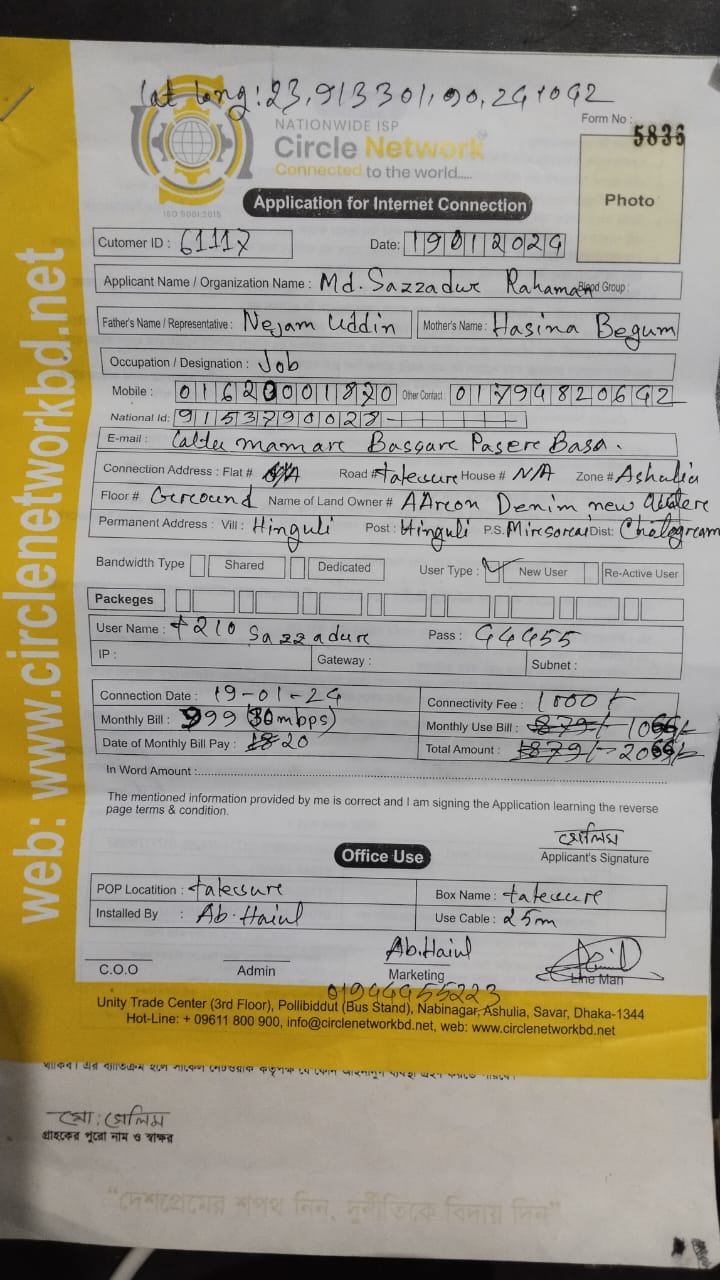 Lat Long: 23,913301,90,241042
NATIONWIDE ISP
Circle Network
Connected to the world.....
ISO 9001:2015
Form No : 5836
Photo
Application for Internet Connection
Cutomer ID : 61117 Date: 19012024
Applicant Name / Organization Name : Md. Sazzadur Rahaman Blood Group :
Father's Name / Representative : Nejam Uddin Mother's Name : Hasina Begum
Occupation / Designation : Job
Mobile : 01620001870 Other Contact 01794820642
National Id: 9153790028
E-mail : mamar Bassar Paser Basa.
Connection Address : Flat # N/A Road # House # N/A Zone # Ashulia
Floor # Ground Name of Land Owner # AAron Denim new
Permanent Address : Vill : Hinguli Post : Hinguli P.S. Mirsorai Dist:
Bandwidth Type Shared Dedicated User Type : ✓ New User Re-Active User
Packeges
User Name : t210 Sazzadur Pass : 44455
IP : Gateway : Subnet :
Connection Date : 19-01-24 Connectivity Fee : 1000/-
Monthly Bill : 999 (30mbps) Monthly Use Bill : 879/-
Date of Monthly Bill Pay : 18 20 Total Amount : 1879/-
In Word Amount :
The mentioned information provided by me is correct and I am signing the Application learning the reverse
page terms & condition.
সেলিম
Applicant's Signature
Office Use
POP Locatition : Box Name :
Installed By : Ab.Haiul Use Cable : 25m
Ab.Haiul
C.O.O Admin Marketing Line Man
01944955223
Unity Trade Center (3rd Floor), Pollibiddut (Bus Stand), Nabinagar, Ashulia, Savar, Dhaka-1344
Hot-Line: + 09611 800 900, info@circlenetworkbd.net, web: www.circlenetworkbd.net
web: www.circlenetworkbd.net
মো: সেলিম
গ্রাহকের পুরো নাম ও স্বাক্ষর
“দেশপ্রেমের শপথ নিন, দুর্নীতিকে বিদায় দিন”